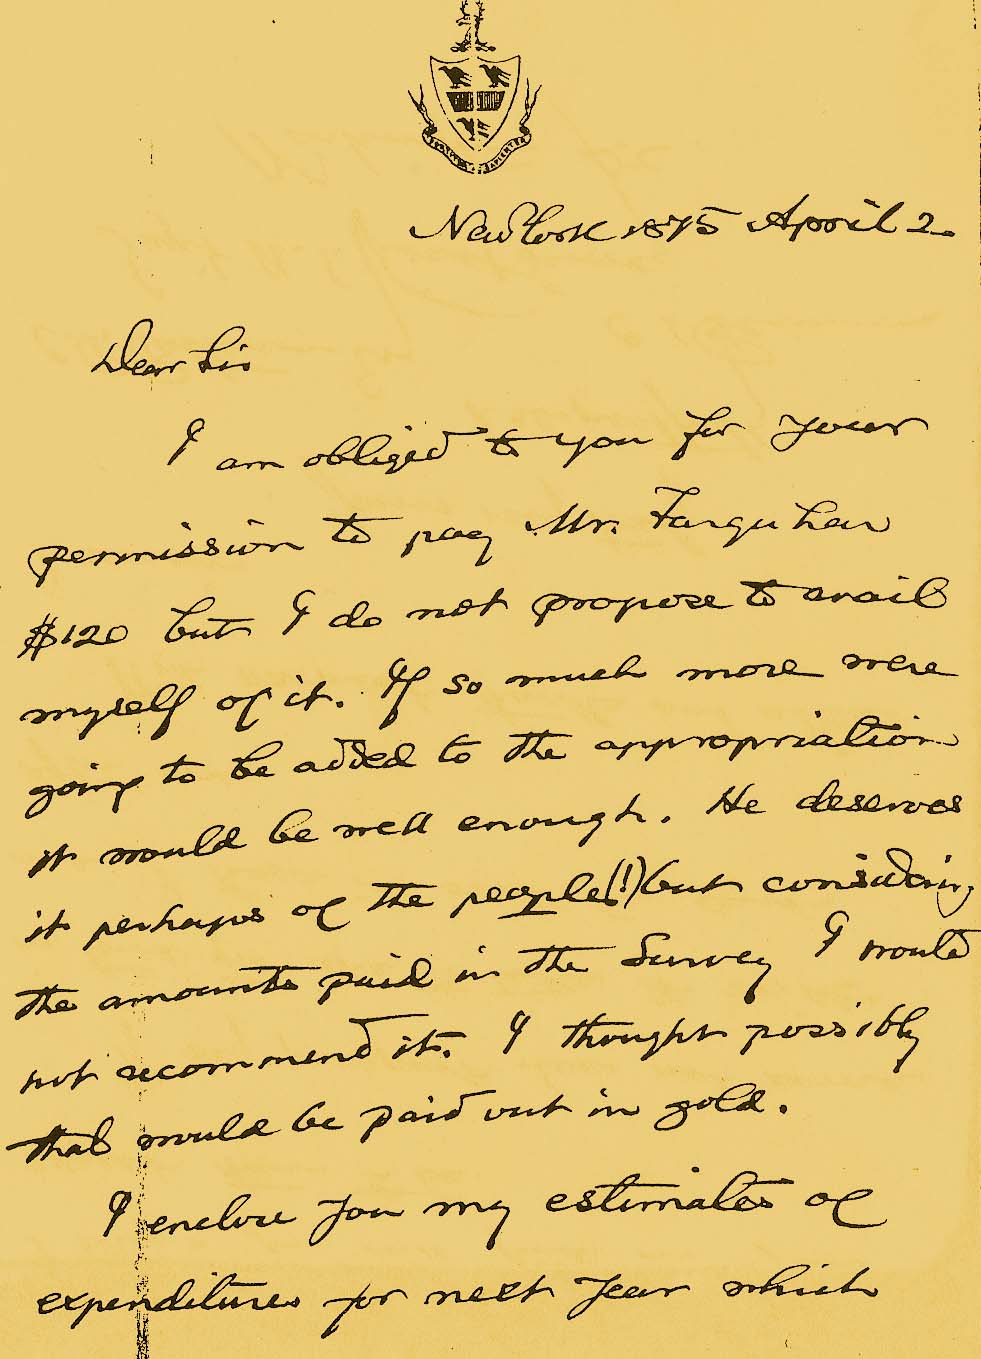 New York 1875 April 2.
Dear Sir
I am obliged to you for your
permission to pay Mr. Farquhar
$120 but I do not propose to avail
myself of it. If so much more were
going to be added to the appropriation
it would be well enough. He deserves
it perhaps of the people(!) but considering
the amounts paid in the Survey I would
not recommend it. I thought possibly
that would be paid out in gold.
I enclose you my estimates of
expenditures for next year which